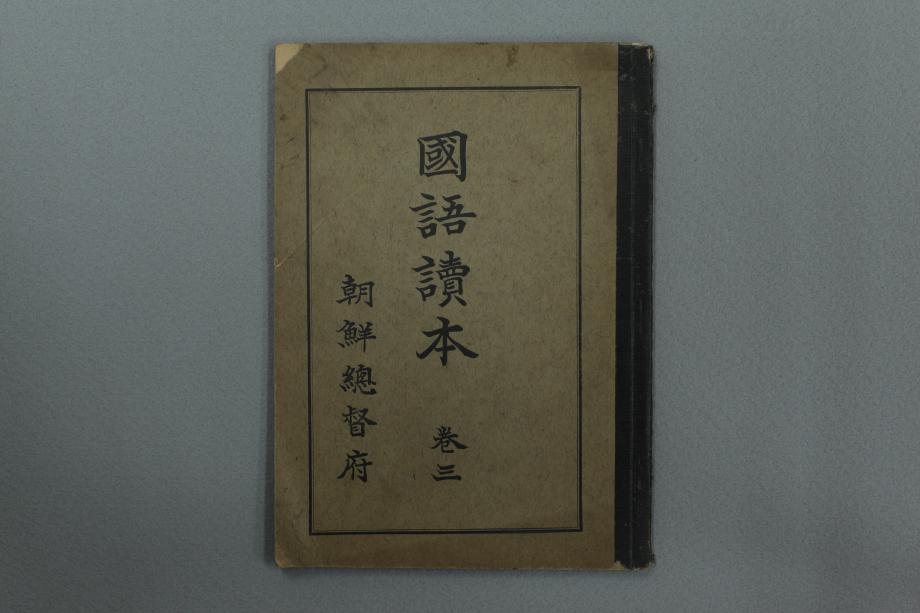 國語讀本 卷三
朝鮮總督府